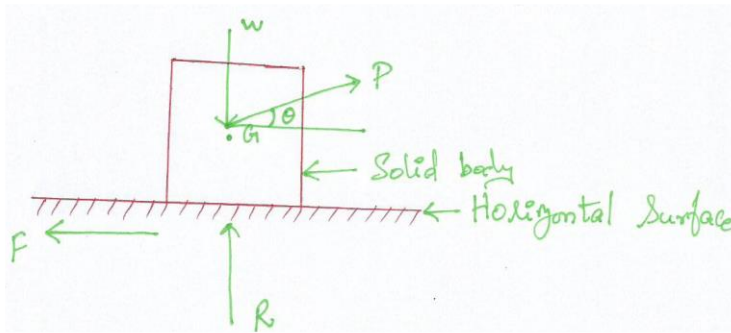 W
P
θ
G
Solid body
Horizontal Surface
F
R